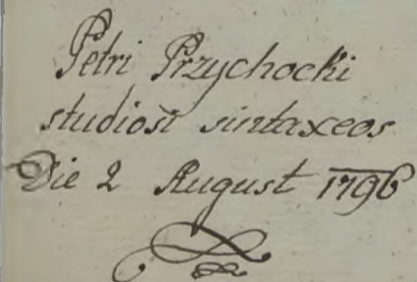 Petri Przychocki
studiosi sintaxeos
Die 2 August 1796